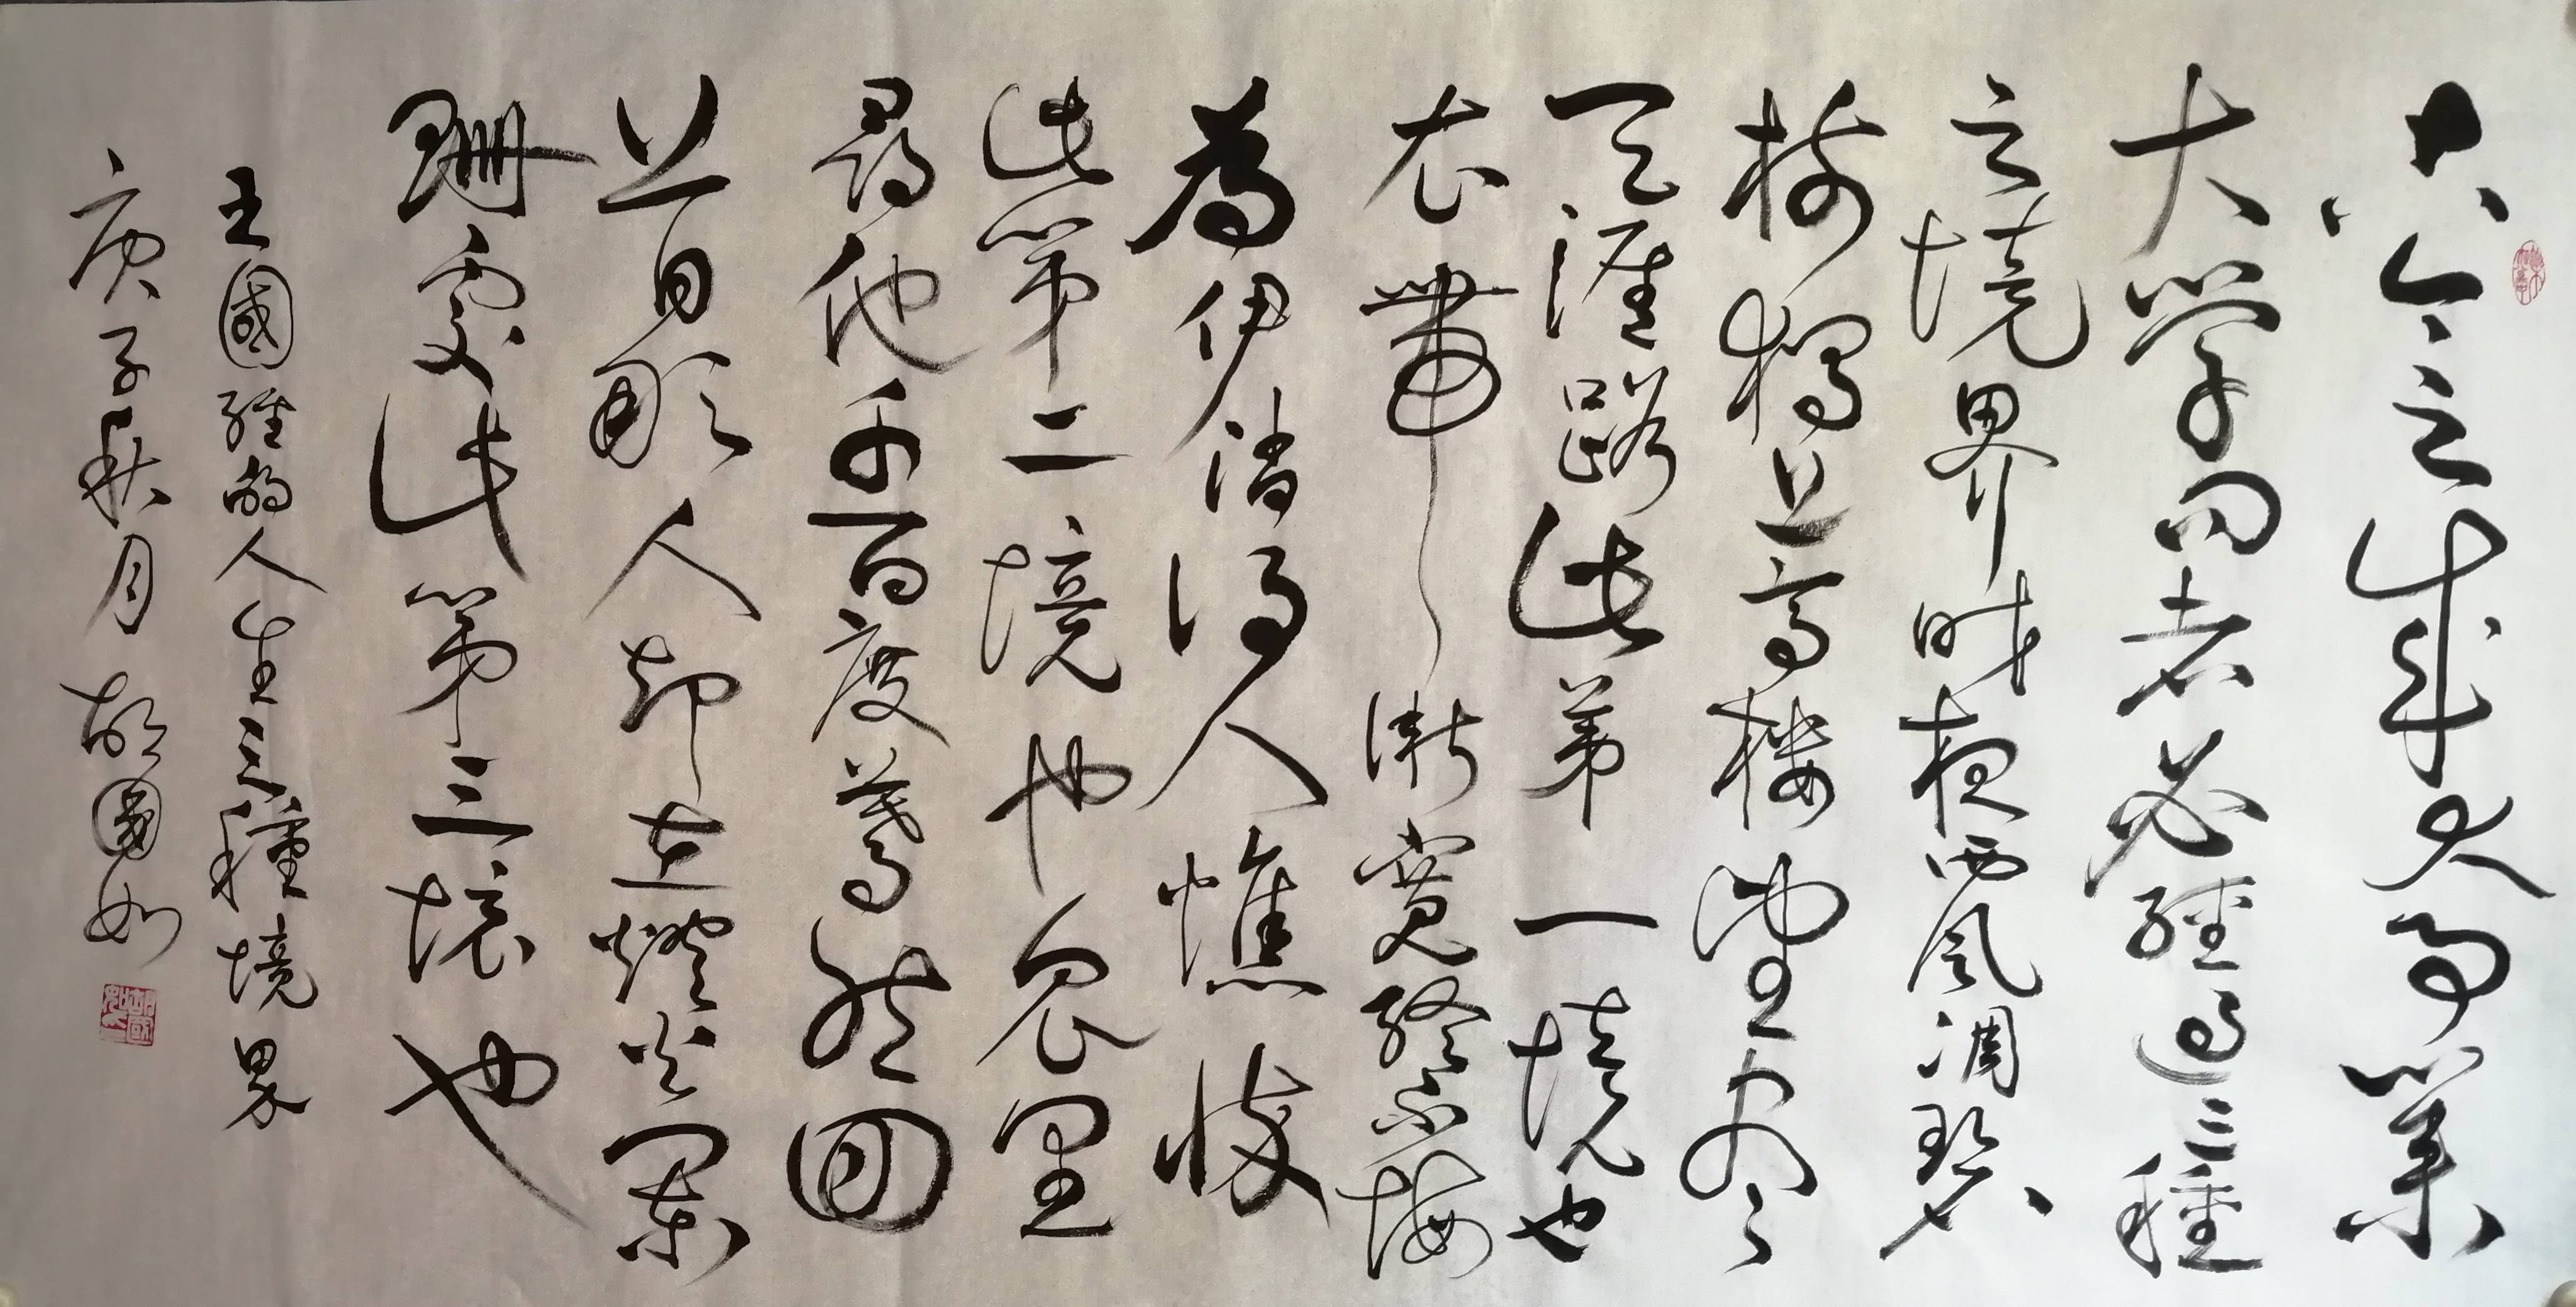 古今之成大事業
大学问者必經過三種
之境界昨夜西风凋碧
樹獨上高楼望尽
天涯路此第一境也
衣帶漸寬終不悔
為伊消得人憔悴
此第二境也衆里
尋他千百度驀然回
首那人却在燈火阑
珊處此第三境也
王國維的人生三種境界
庚子秋月 胡國如